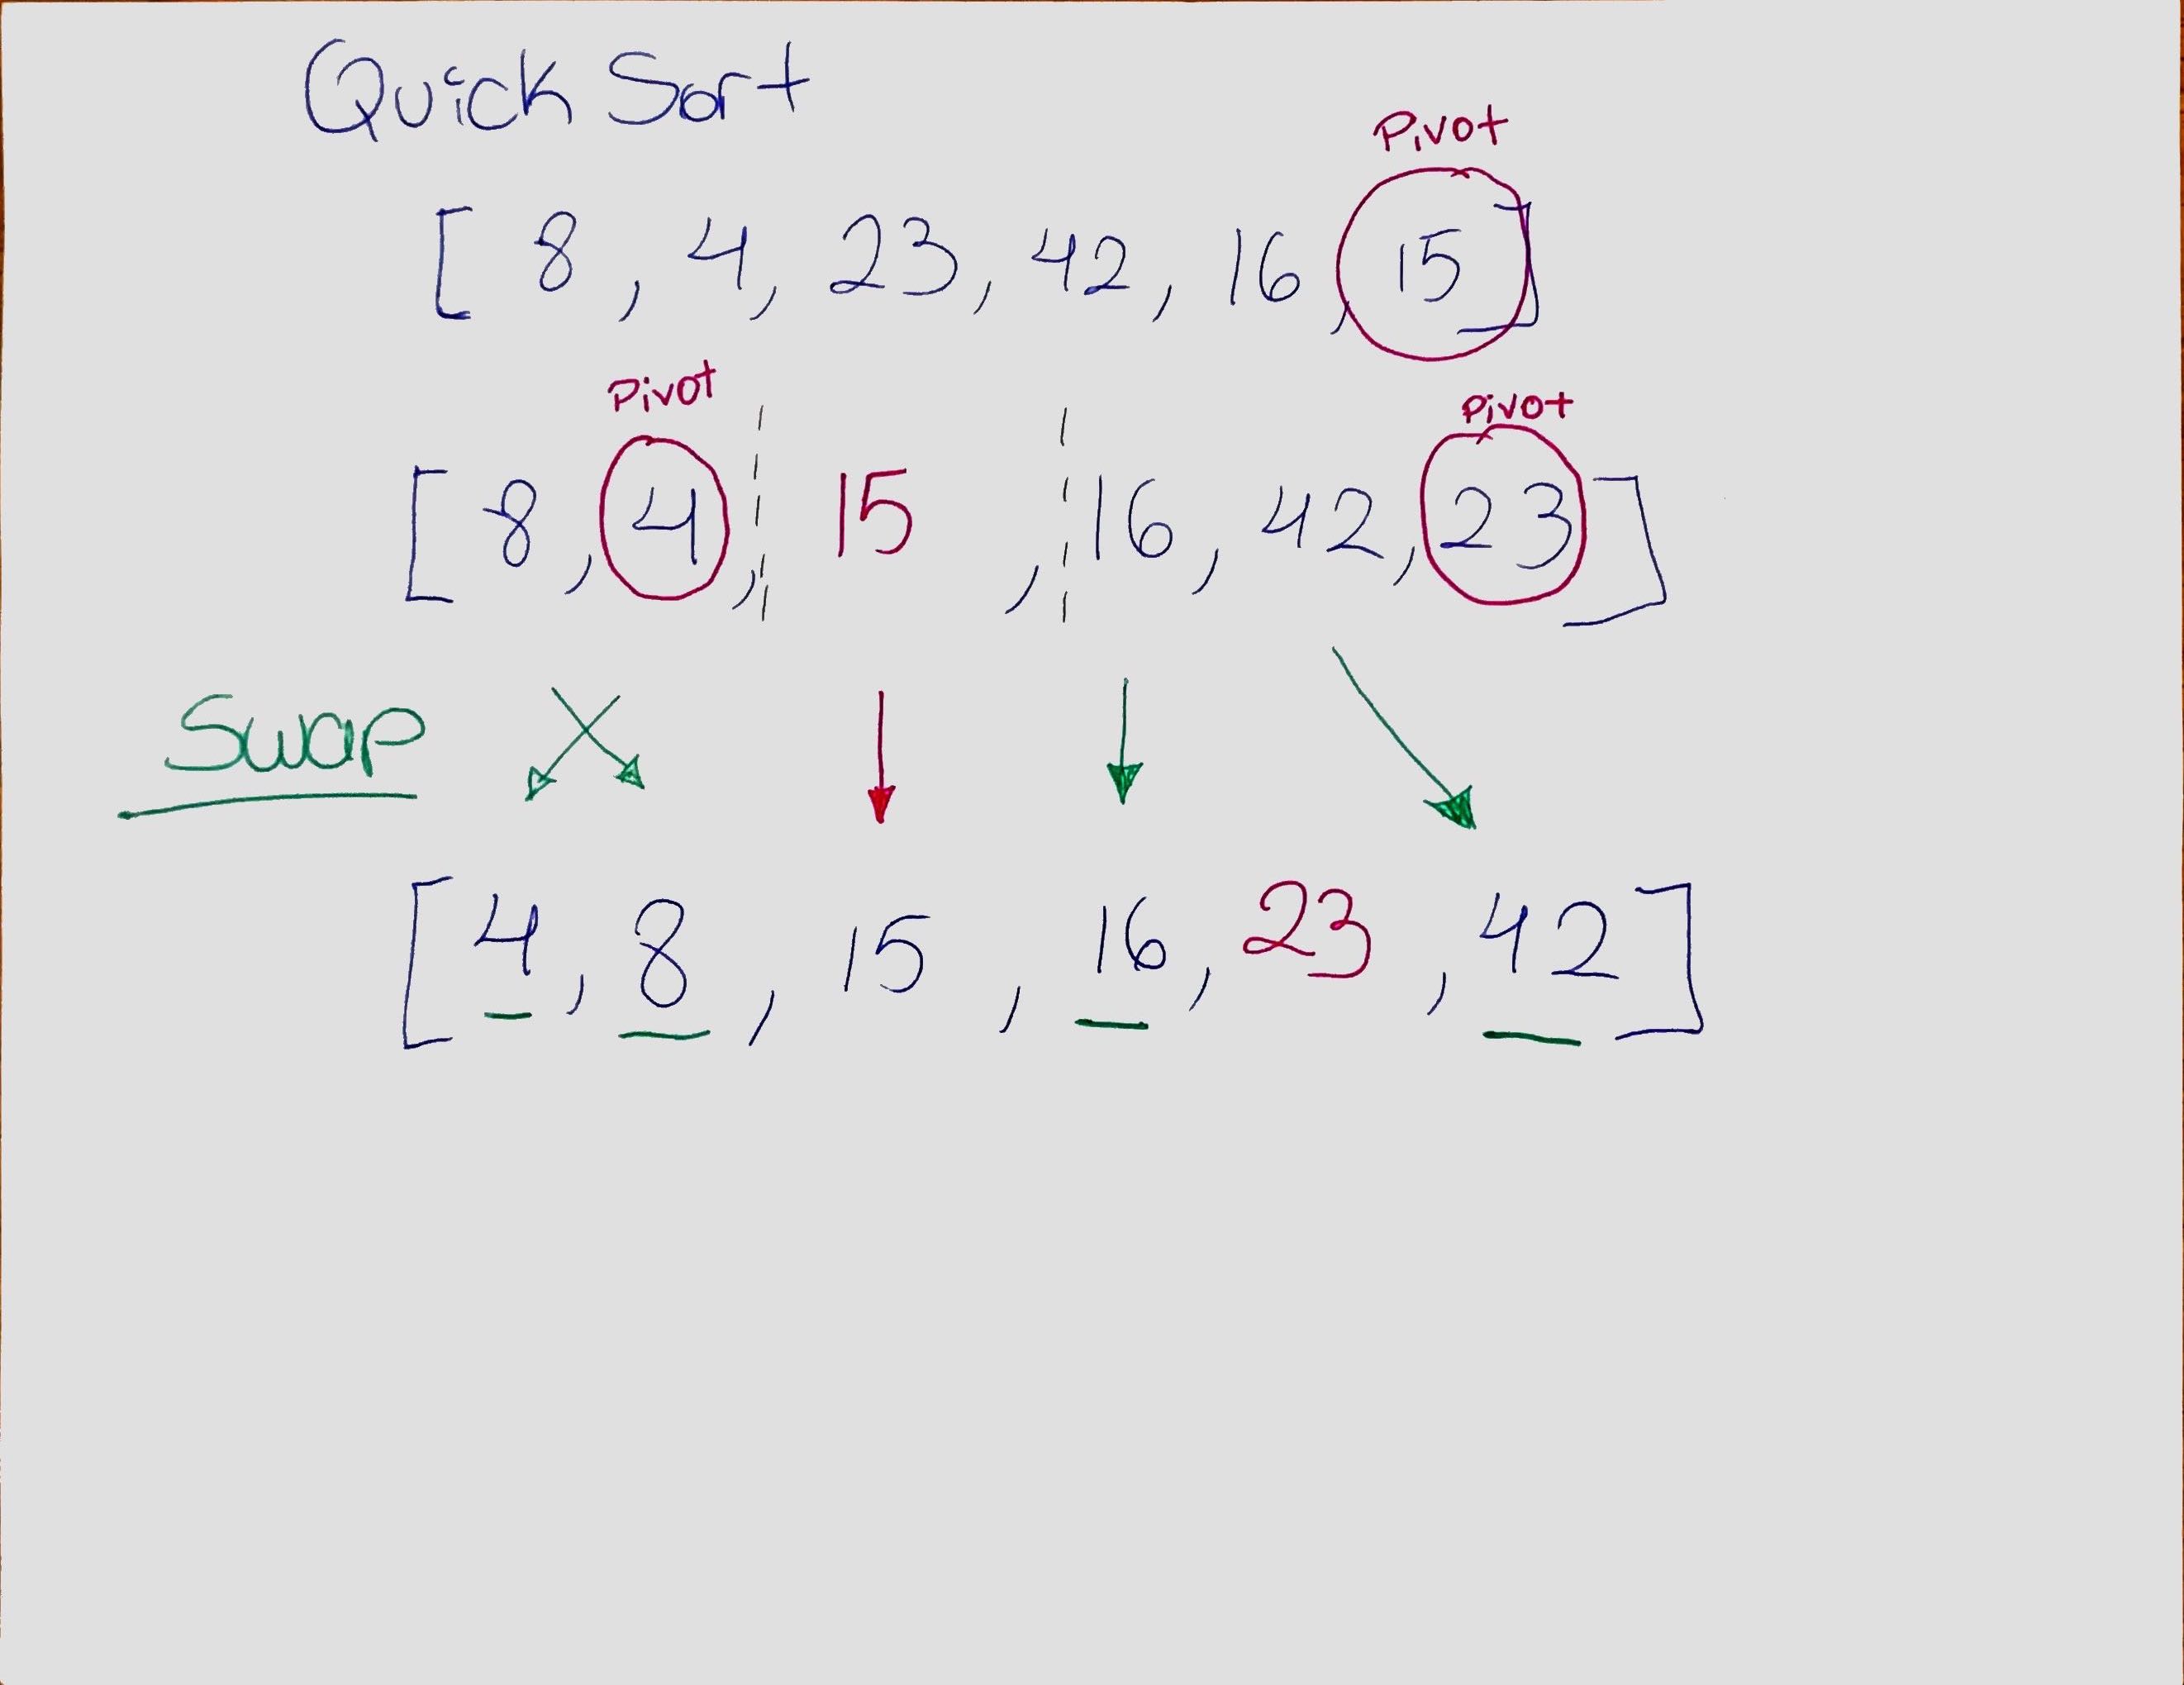 Quick Sort
Pivot
[ 8 , 4, 23, 42, 16, 15 ]
Pivot
Pivot
[ 8, 4, 15 , 16, 42, 23 ]
Swap
[ 4, 8, 15, 16, 23, 42 ]